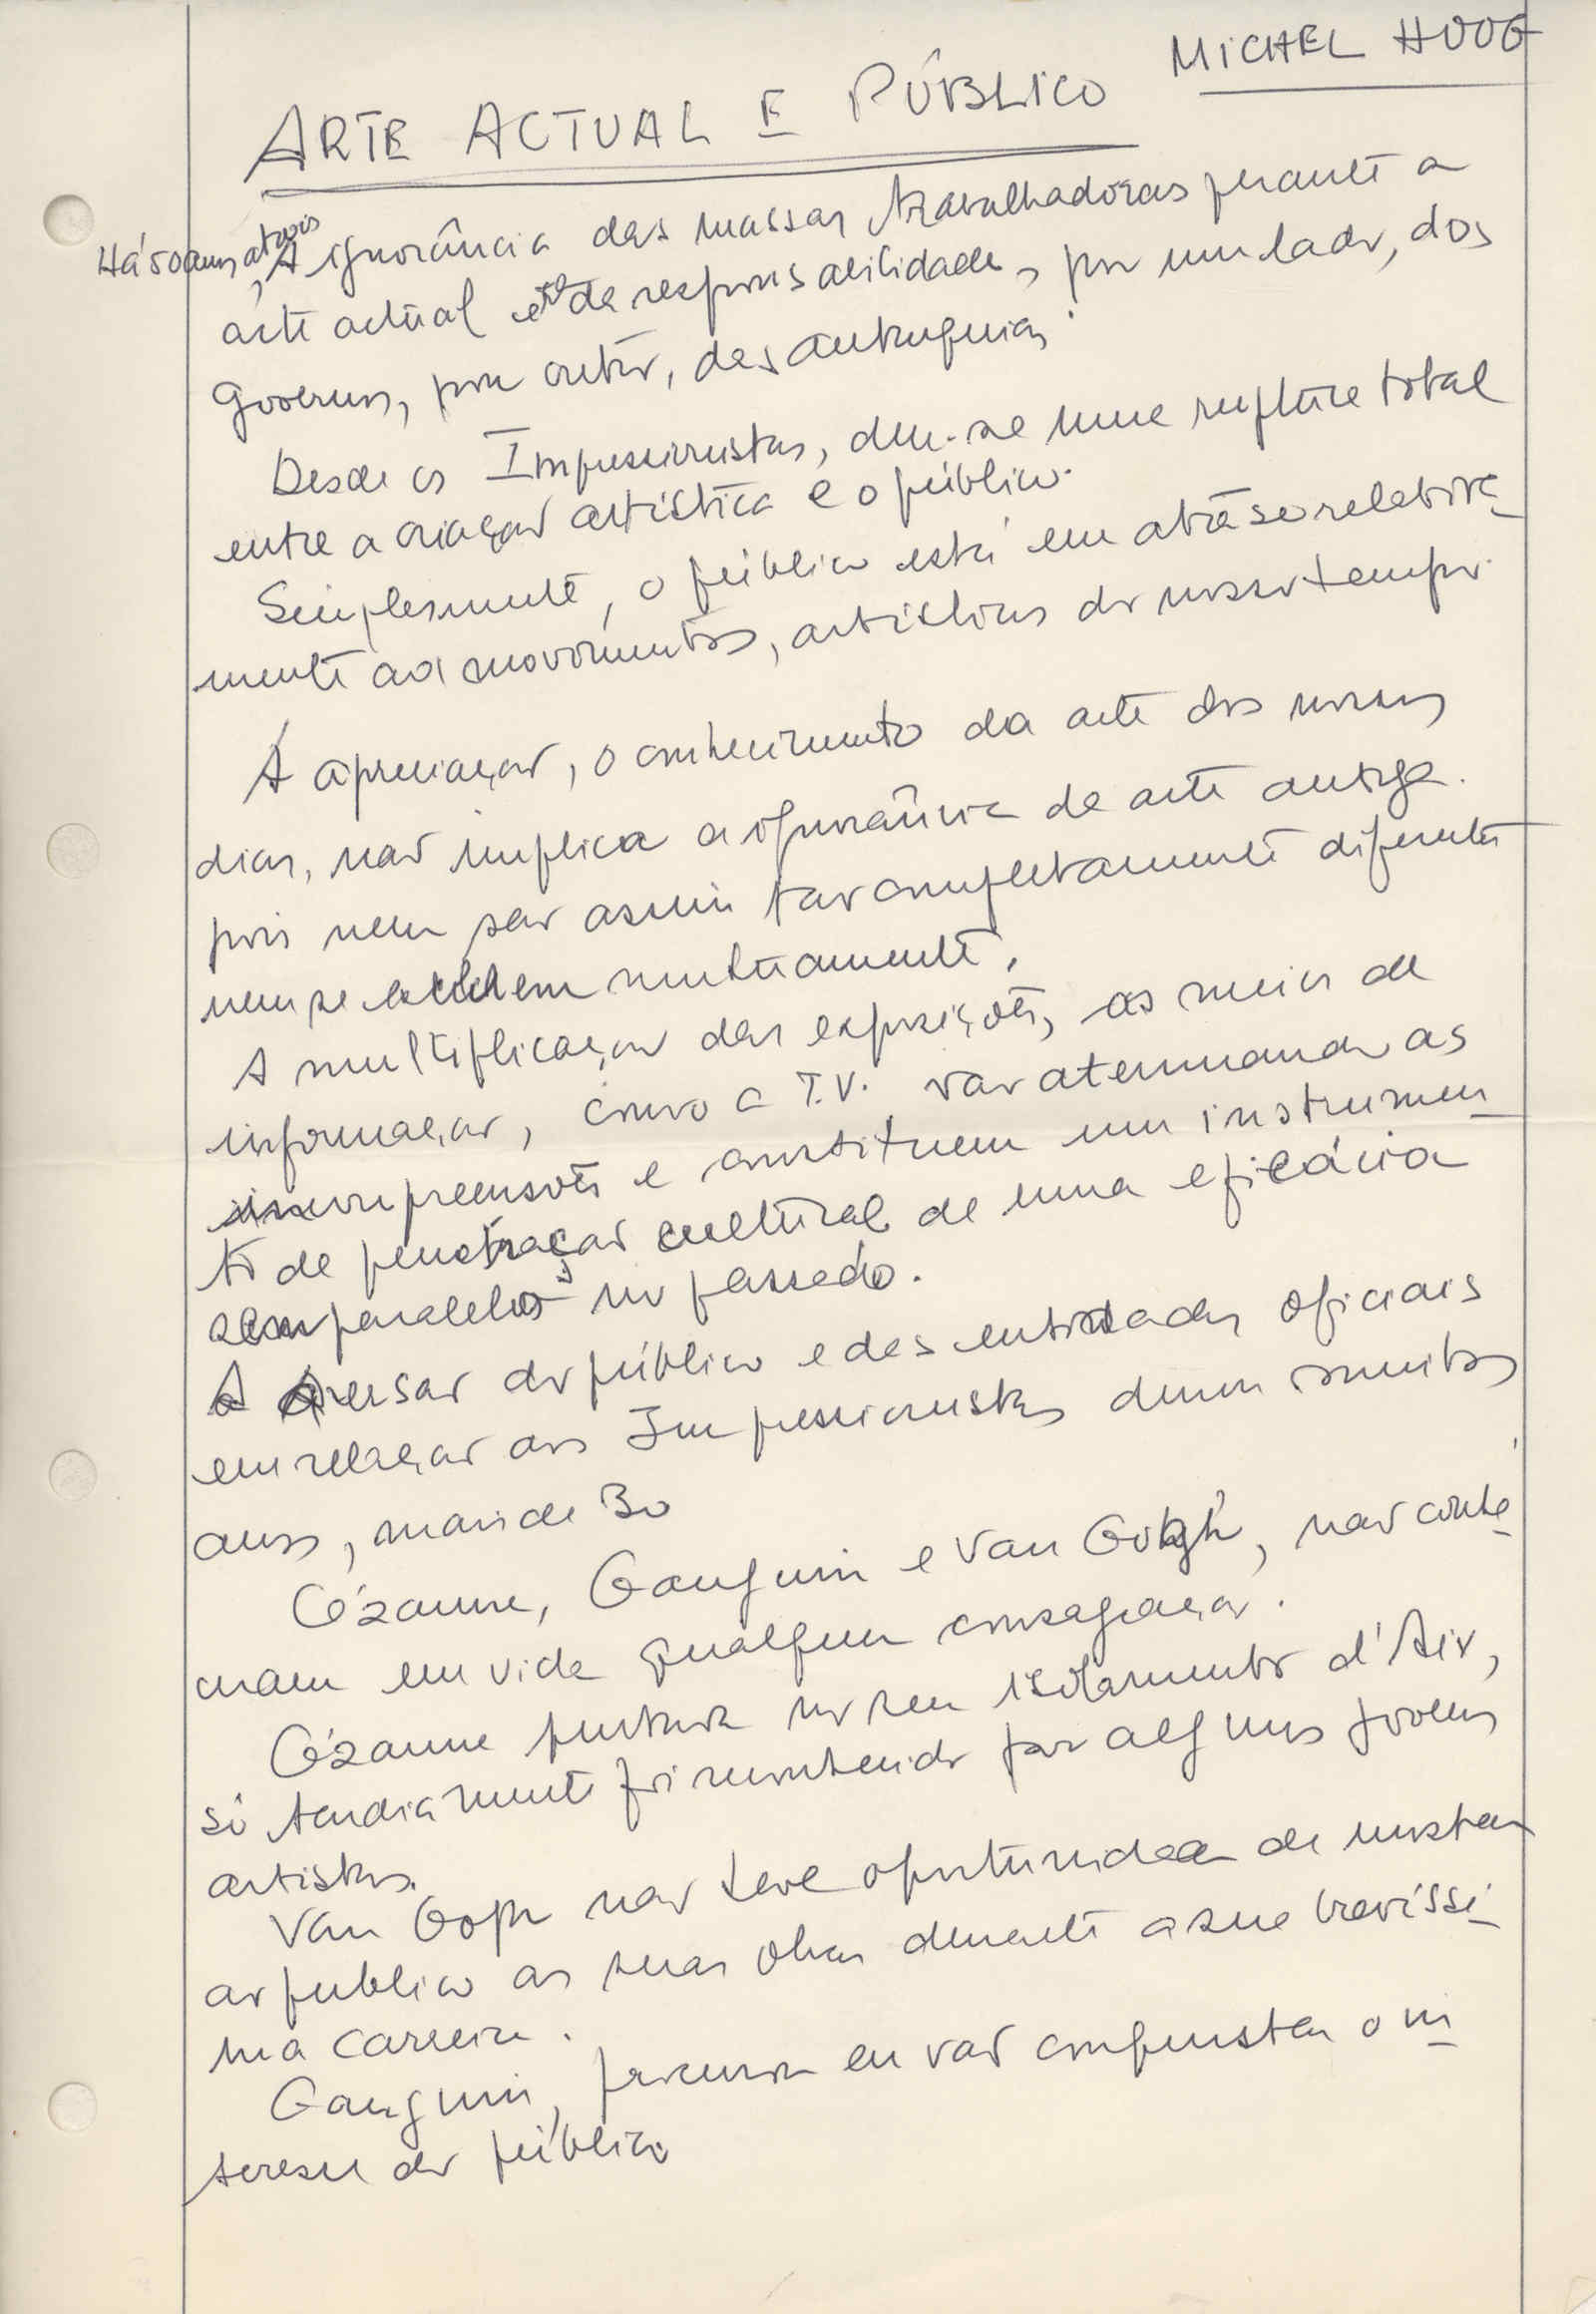 MICHEL HOOG
ARTE ACTUAL E PÚBLICO
Há 50 anos atrais
, A ignorância das massas trabalhadoras perante a
arte actual era da responsabilidade, por um lado, dos
Governos, por outro, das
Desde os Impressionistas, deu-se uma ruptura total
entre a criação artística e o público.
Simplesmente, o público está em atraso relativa-
mente aos movimentos, artísticos do nosso tempo.
A apreciação, o conhecimento da arte dos nossos
dias, não implica a ignorância da arte antiga.
pois nem são assim tão completamente diferentes
nem se excluem mutuamente.
A multiplicação das exposições, os meios de
informação, como a T.V. vão atenuando as
incompreensões e constituem um instrumen-
to de penetração cultural de uma eficácia
sem paralelo no passado.
A aversão do público e das entidades oficiais
em relação aos Impressionistas durou muitos
anos, mais de 30
Cézanne, Gauguin e Van Gogh, não conhe-
ceram em vida qualquer consagração.
Cézanne no seu isolamento d'Aix,
só tardiamente foi reconhecido por alguns jovens
artistas.
Van Gogh não teve oportunidade de mostrar
ao publico as suas obras durante a sua brevíssi-
ma carreira.
Gauguin, procurou em vão conquistar o in-
teresse do público